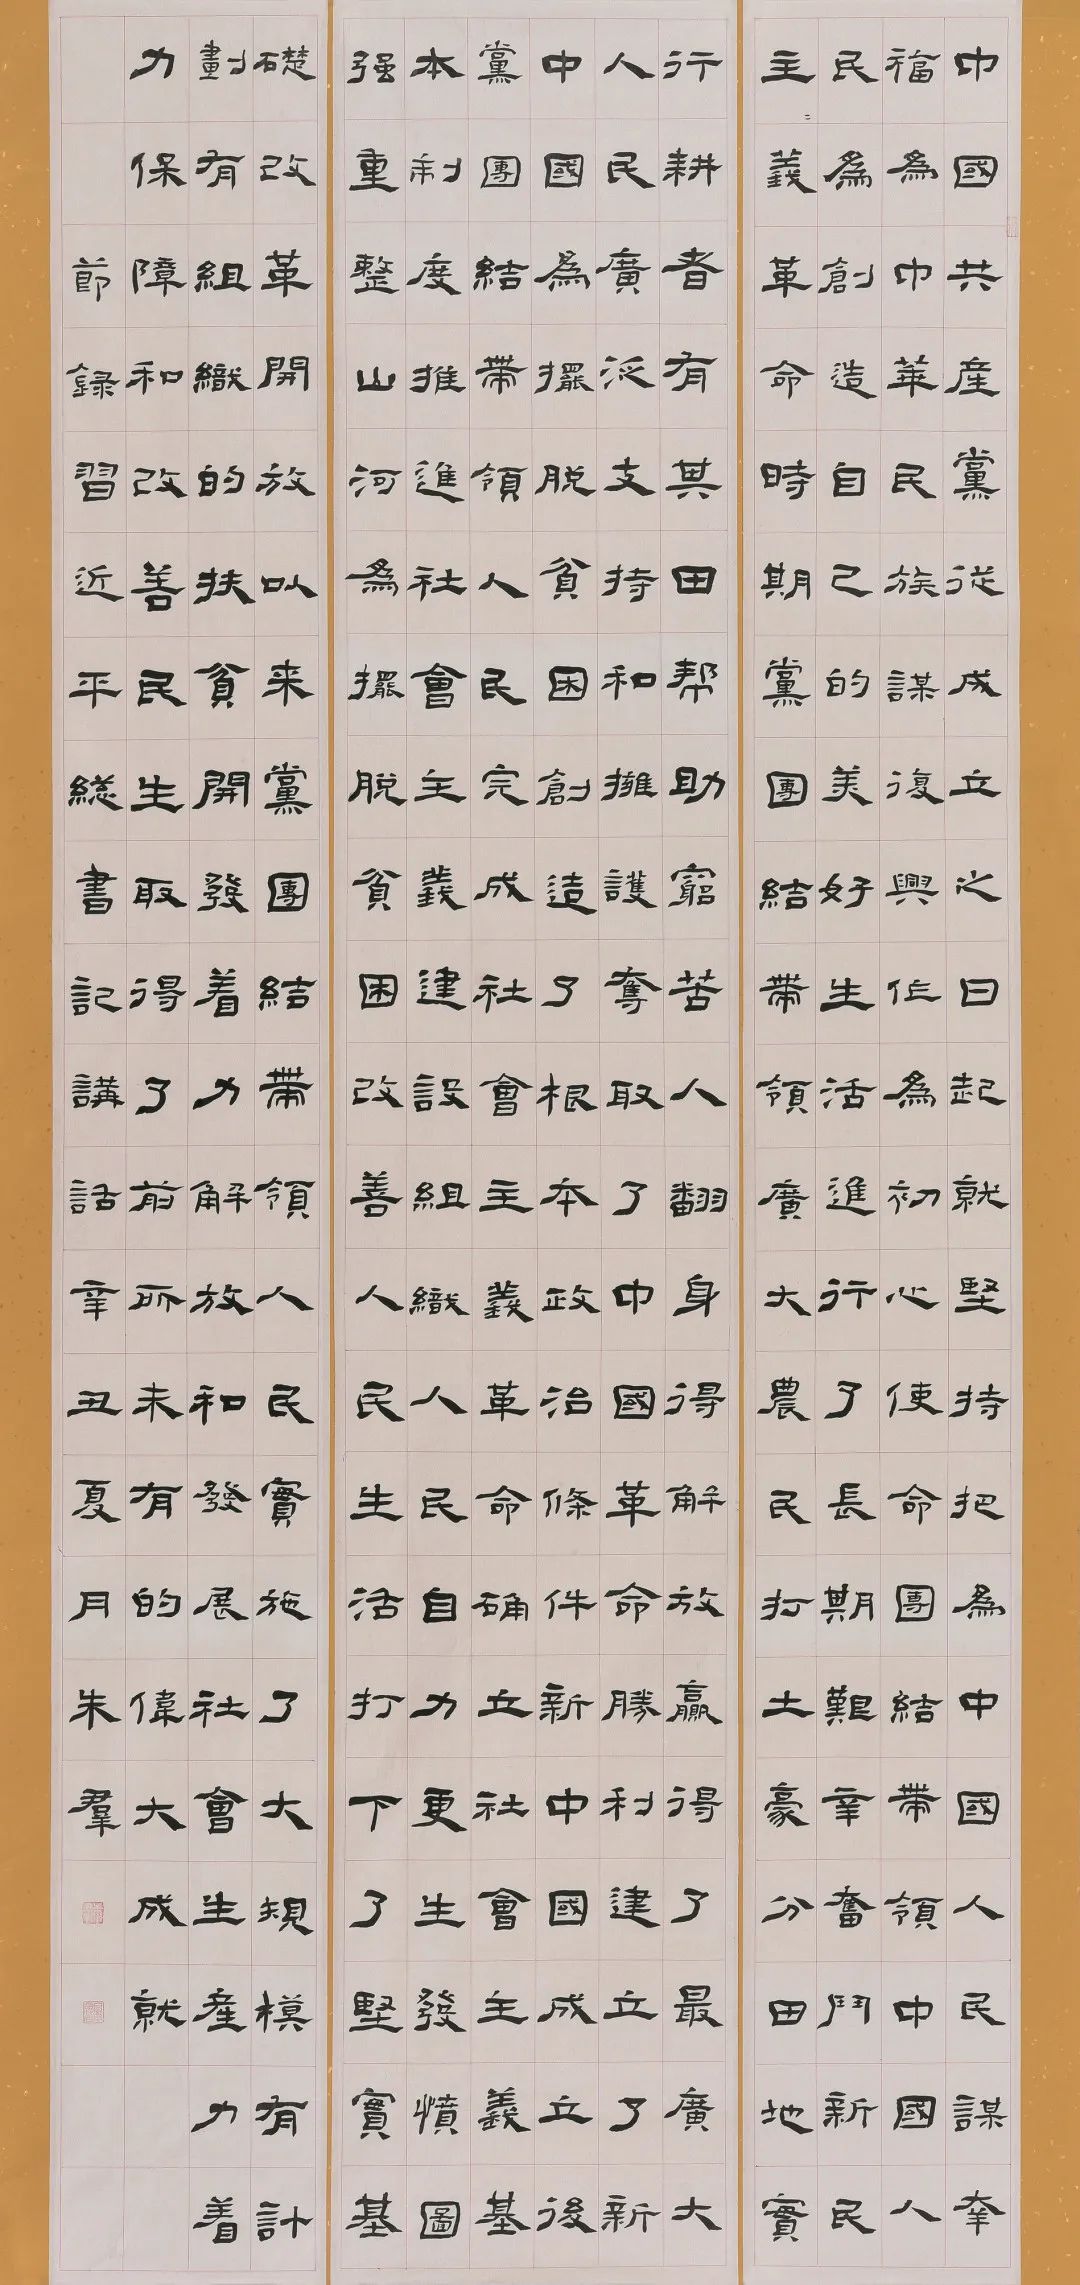 中國共産黨從成立之日起就堅持把為中國人民謀幸
福為中華民族謀復興作為初心使命團結帶領中國人
民為創造自己的美好生活進行了長期艱辛奮鬥新民
主義革命時期黨團結帶領廣大農民打土豪分田地實
行耕者有其田帮助窮苦人翻身得解放贏得了最廣大
人民廣泛支持和擁護奪取了中國革命勝利建立了新
中國為擺脱貧困創造了根本政治條件新中國成立後
黨團結帶領人民完成社會主義革命确立社會主義基
本制度推進社會主義建設組織人民自力更生發憤圖
强重整山河為擺脱貧困改善人民生活打下了堅實基
礎改革開放以来黨團結帶領人民實施了大規模有計
劃有組織的扶貧開發着力解放和發展社會生産力着
力保障和改善民生取得了前所未有的偉大成就
節録習近平緫書記講話辛丑夏月朱羣